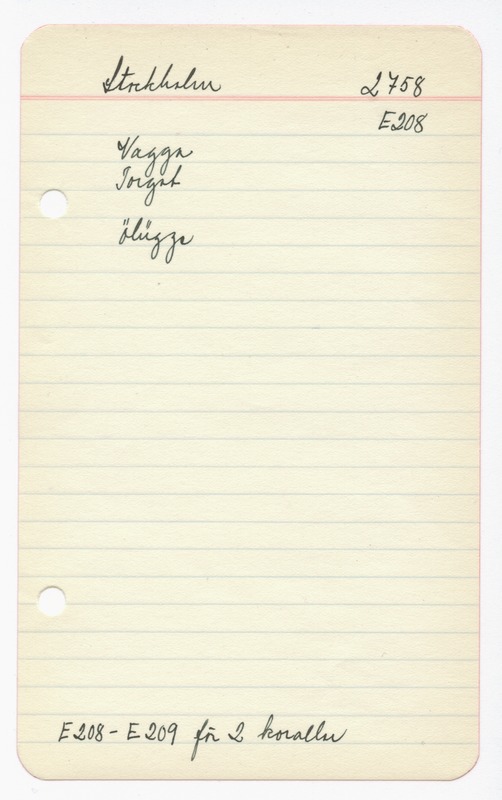 Stockholm 2758
E208
Vagga
Torgut
E208 - E209 för 2 koraller